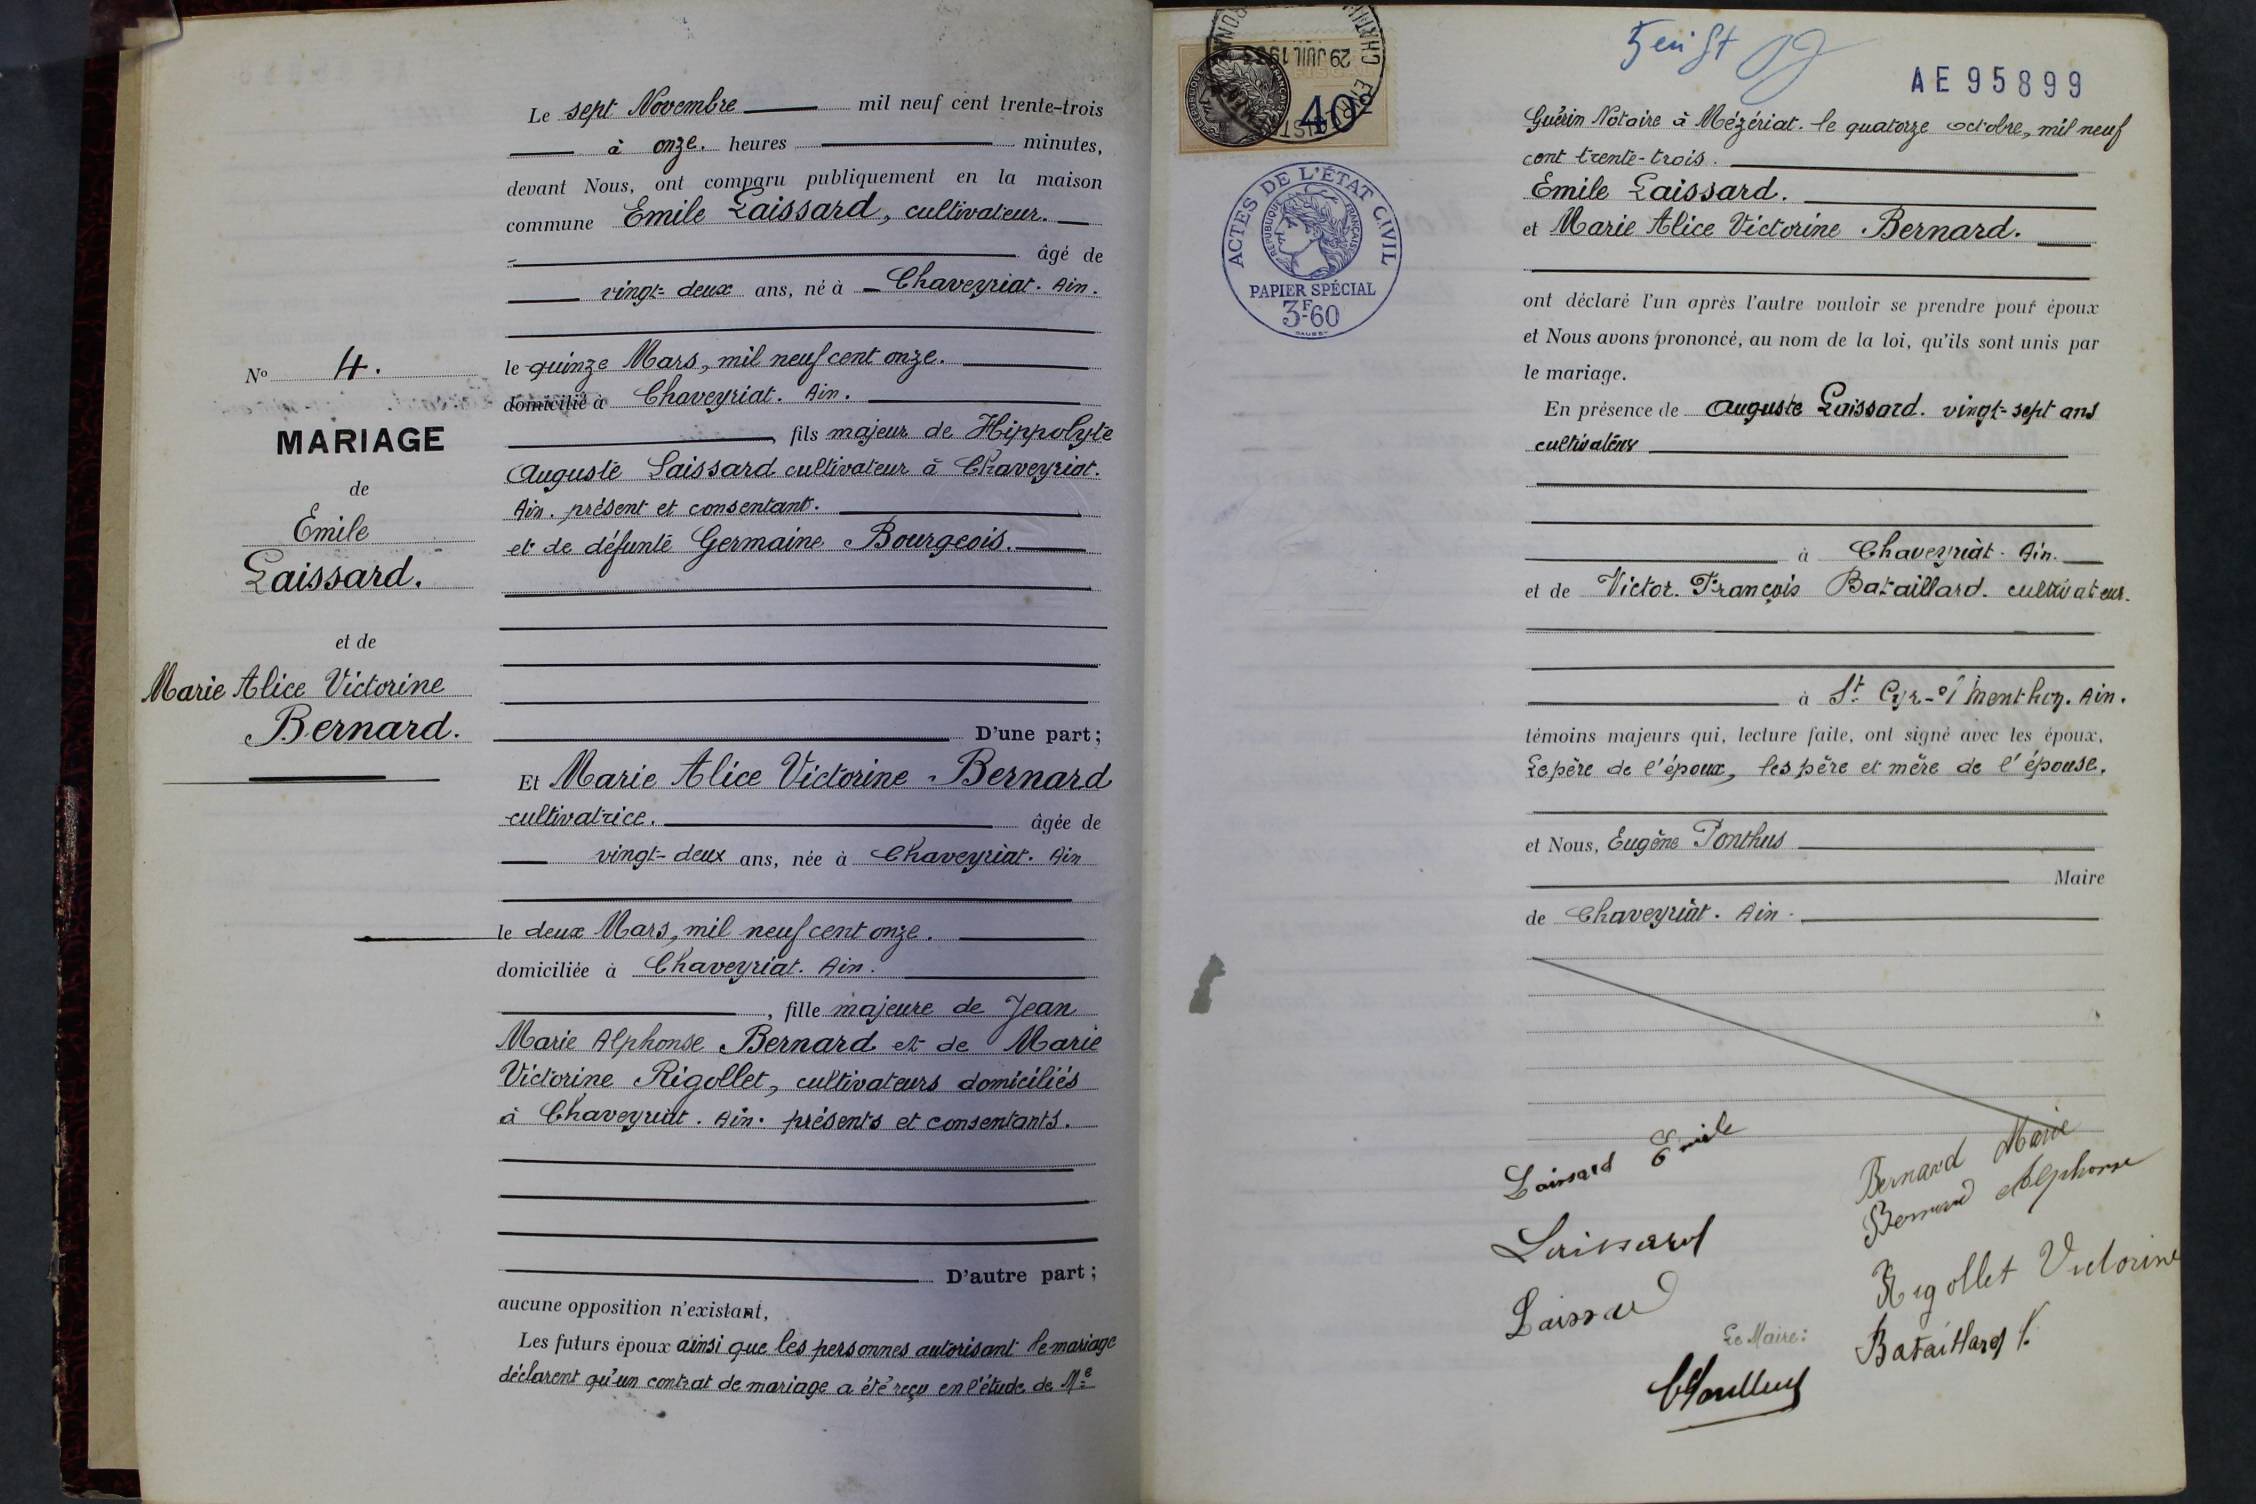 Le sept Novembre mil neuf cent trente-trois
à onze. heures minutes,
devant Nous, ont comparu publiquement en la maison
commune Emile Laissard, cultivateur.
âgé de
vingt-deux ans, né à Chaveyriat. Ain.
le quinze Mars, mil neuf cent onze.
domicilié à Chaveyriat. Ain.
fils majeur de Hippolyte
Auguste Laissard cultivateur à Chaveyriat.
Ain. présent et consentant.
et de défunte Germaine Bourgeois.
D'une part;
Et Marie Alice Victorine Bernard
cultivatrice. âgée de
vingt-deux ans, née à Chaveyriat. Ain
le deux Mars, mil neuf cent onze.
domiciliée à Chaveyriat. Ain.
, fille majeure de Jean
Marie Alphonse Bernard et de Marie
Victorine Rigollet, cultivateurs domiciliés
à Chaveyriat. Ain. présents et consentants.
D'autre part;
aucune opposition n'existant,
Les futurs époux ainsi que les personnes autorisant le mariage
déclarent qu'un contrat de mariage a été reçu en l'étude de Me
No 4.
MARIAGE
de
Emile
Laissard.
et de
Marie Alice Victorine
Bernard.
29 JUIL 1933
FISCAL
40
ACTES DE L'ÉTAT CIVIL
RÉPUBLIQUE FRANÇAISE
PAPIER SPÉCIAL
3F.60
AE95899
Guérin Notaire à Mézériat. le quatorze octobre, mil neuf
cent trente-trois.
Emile Laissard.
et Marie Alice Victorine Bernard.
ont déclaré l'un après l'autre vouloir se prendre pour époux
et Nous avons prononcé, au nom de la loi, qu'ils sont unis par
le mariage.
En présence de Auguste Laissard. vingt-sept ans
cultivateur
à Chaveyriat. Ain.
et de Victor. François Bataillard. cultivateur.
à St Cyr-s/Menthon. Ain.
témoins majeurs qui, lecture faite, ont signé avec les époux,
Le père de l'époux, les père et mère de l'épouse.
et Nous, Eugène Ponthus
Maire
de Chaveyriat. Ain.
Laissard Emile
Bernard Marie
Bernard Alphonse
Laissard
Rigollet Victorine
Laissard
Le Maire:
Bataillard V.